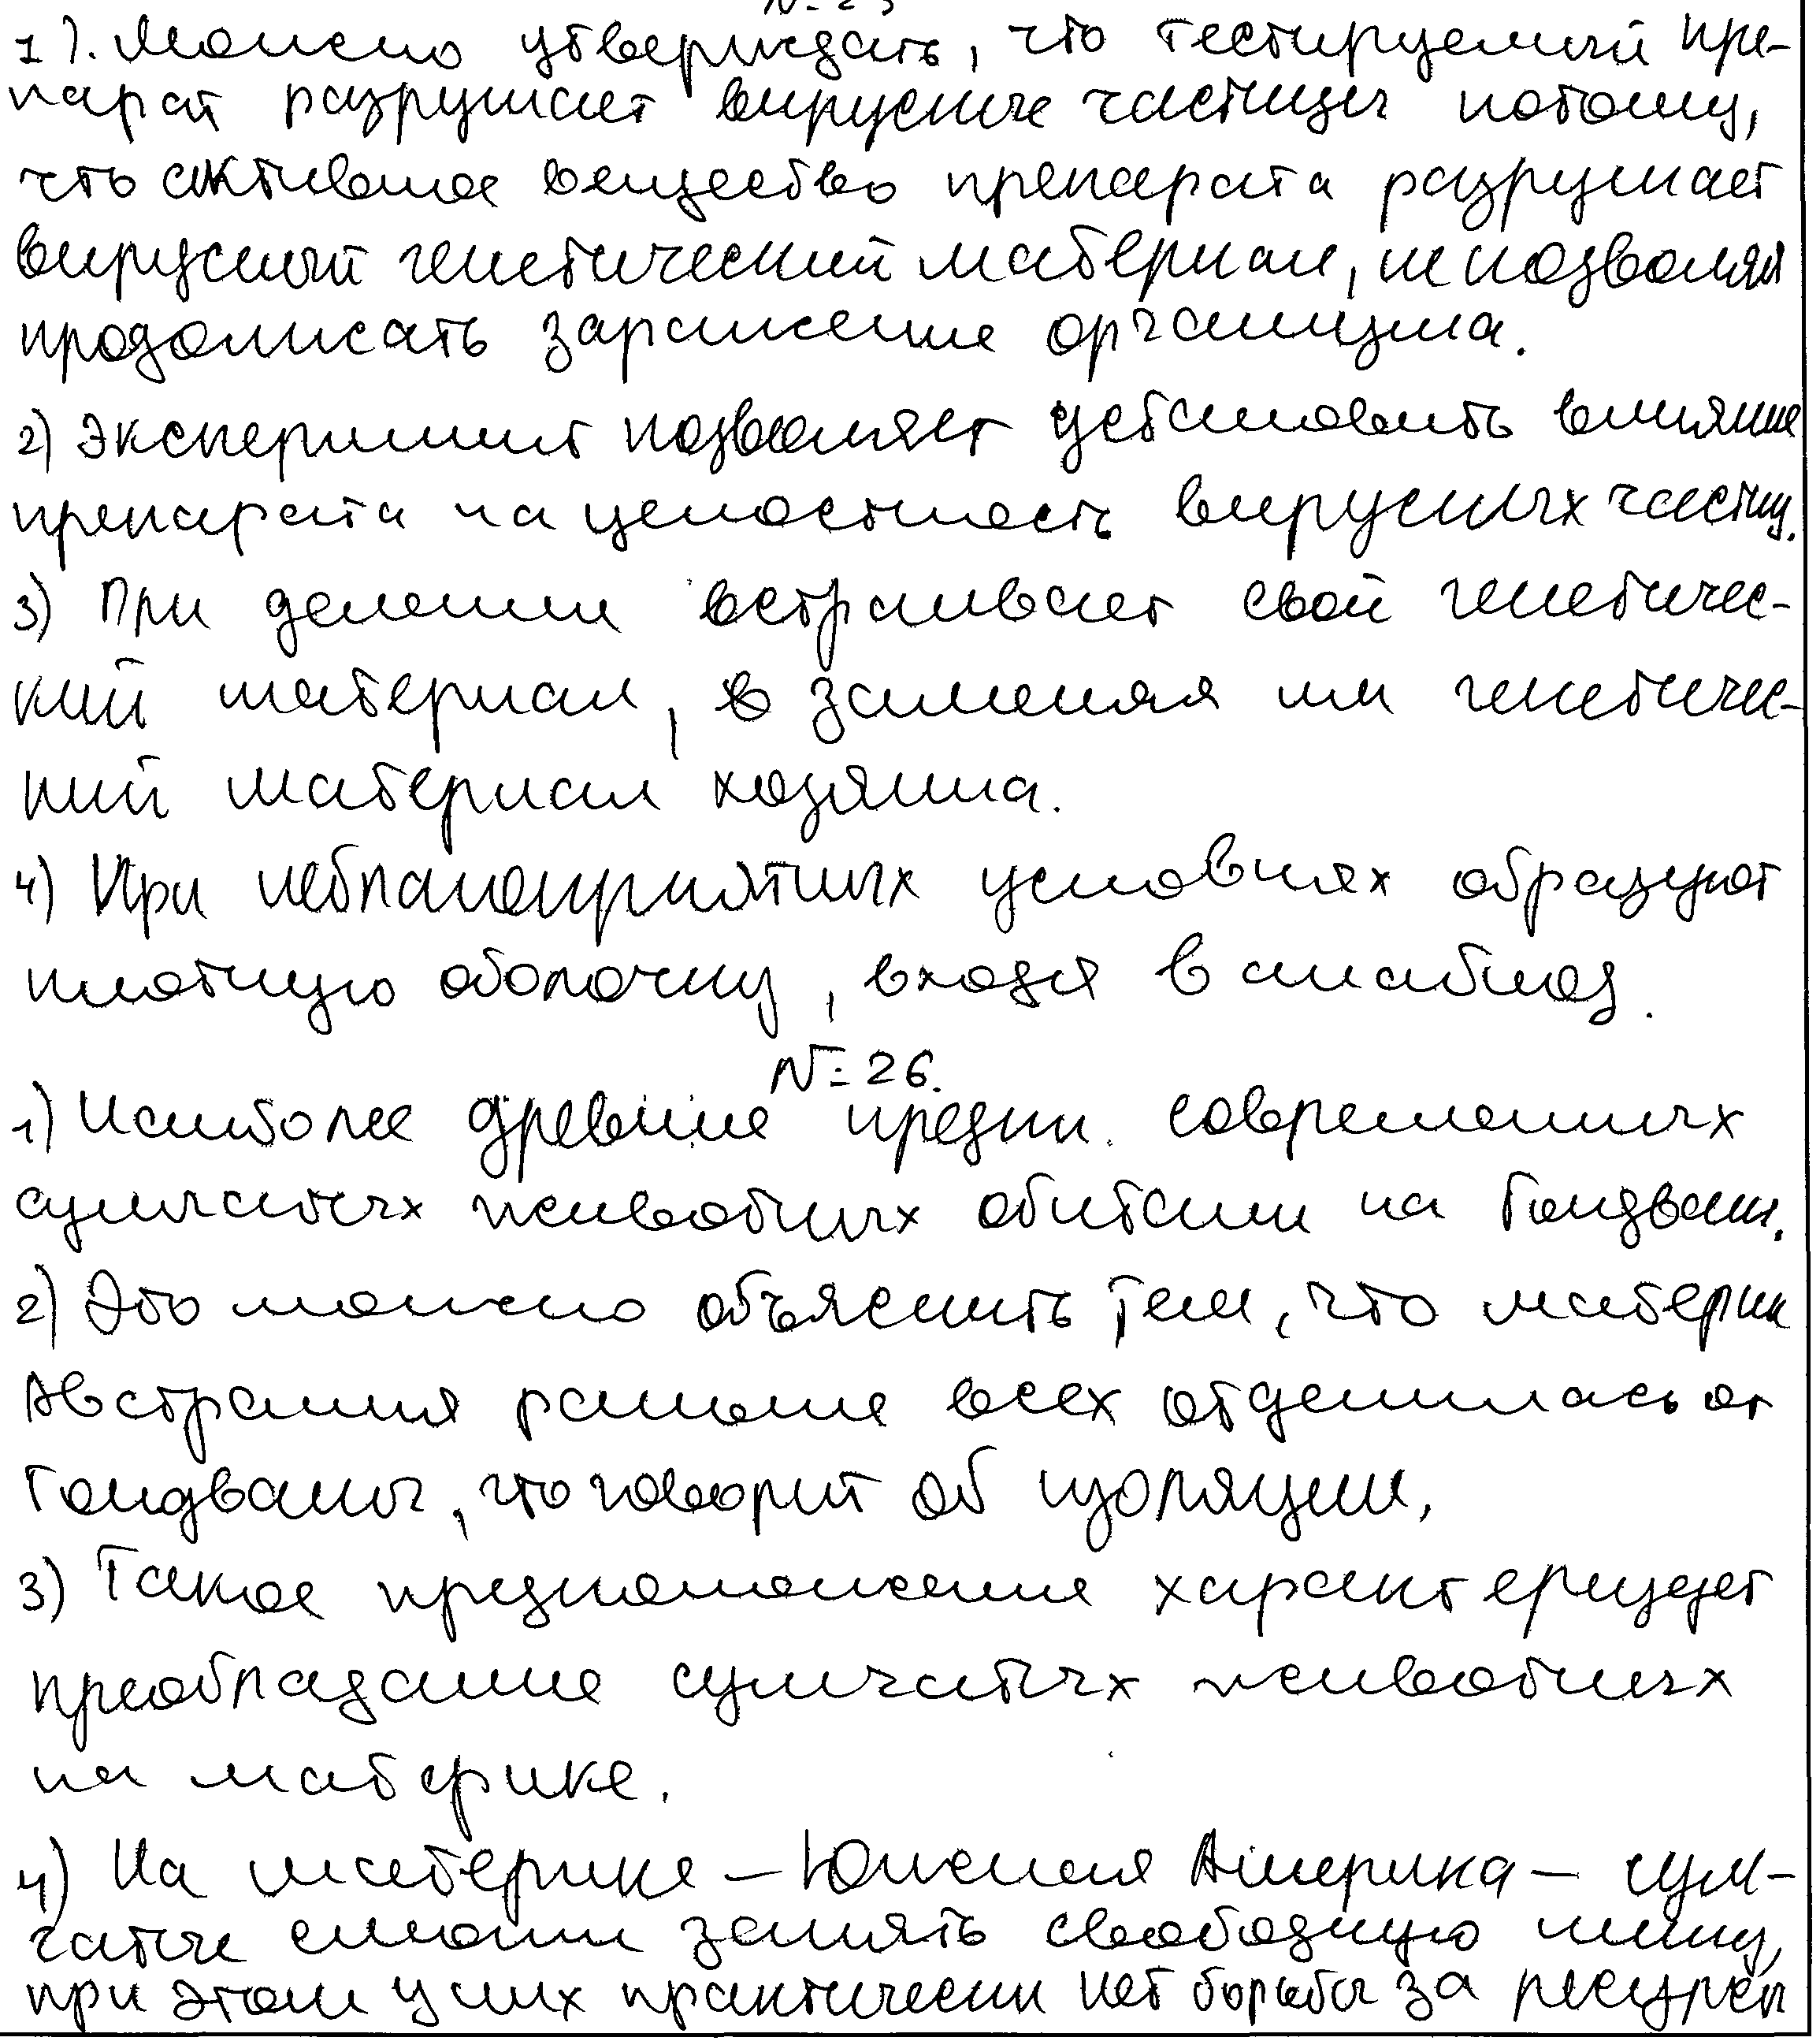 1). Можно утверждать, что тестируемый пре-
парат разрушает вирусные частицы потому,
что активное вещество препарата разрушает
вирусный генетический материал, не позволяя
продолжать заражение организма.
2) Эксперимент позволяет установить влияние
препарата на целостность вирусных частиц.
3) При делении встраивает свой генетичес-
кий материал, в заменяя им генетичес-
кий материал хозяина.
4) При неблагоприятных условиях образуют
плотную оболочку, входя в анабиоз.
№ 26.
1) Наиболее древние предки современных
сумчатых животных обитали на Гондване.
2) Это можно объяснить тем, что материк
Австралия раньше всех отделилась от
Гондваны, что говорит об изоляции.
3) Такое предположение характеризует
преобладание сумчатых животных
на материке.
4) На материке – Южная Америка – сум-
чатые смогли занять свободную нишу,
при этом у них практически нет борьбы за ресурсы